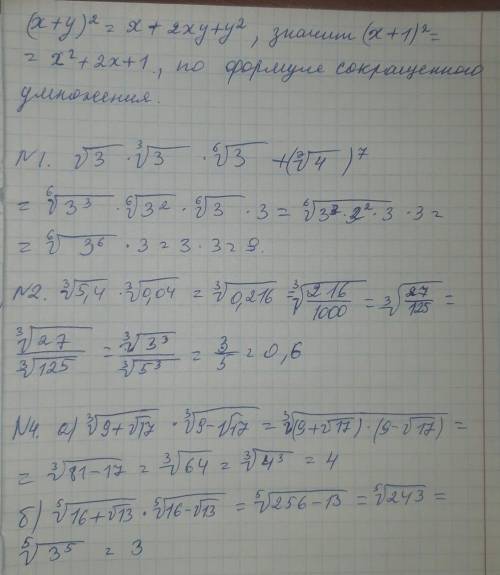 (x+y)² = x + 2xy+y², значит (x+1)² =
= x² + 2x+1, по формуле сокращенного
умножения.
N1. √3 · ∛3 · ⁶√3 + (⁷√4)⁷
= ⁶√3³ · ⁶√3² · ⁶√3 · 3 = ⁶√3³·3²·3 · 3 =
= ⁶√3⁶ · 3 = 3 · 3 = 9.
N2. ∛5,4 · ∛0,04 = ∛0,216 = ∛216/1000 = ∛27/125 =
∛27/∛125 = ∛3³/∛5³ = 3/5 = 0,6
N4. а) ∛9+√17 · ∛9-√17 = ∛(9+√17)·(9-√17) =
= ∛81-17 = ∛64 = ∛4³ = 4
б) ⁵√16+√13 · ⁵√16-√13 = ⁵√256-13 = ⁵√243 =
⁵√3⁵ = 3